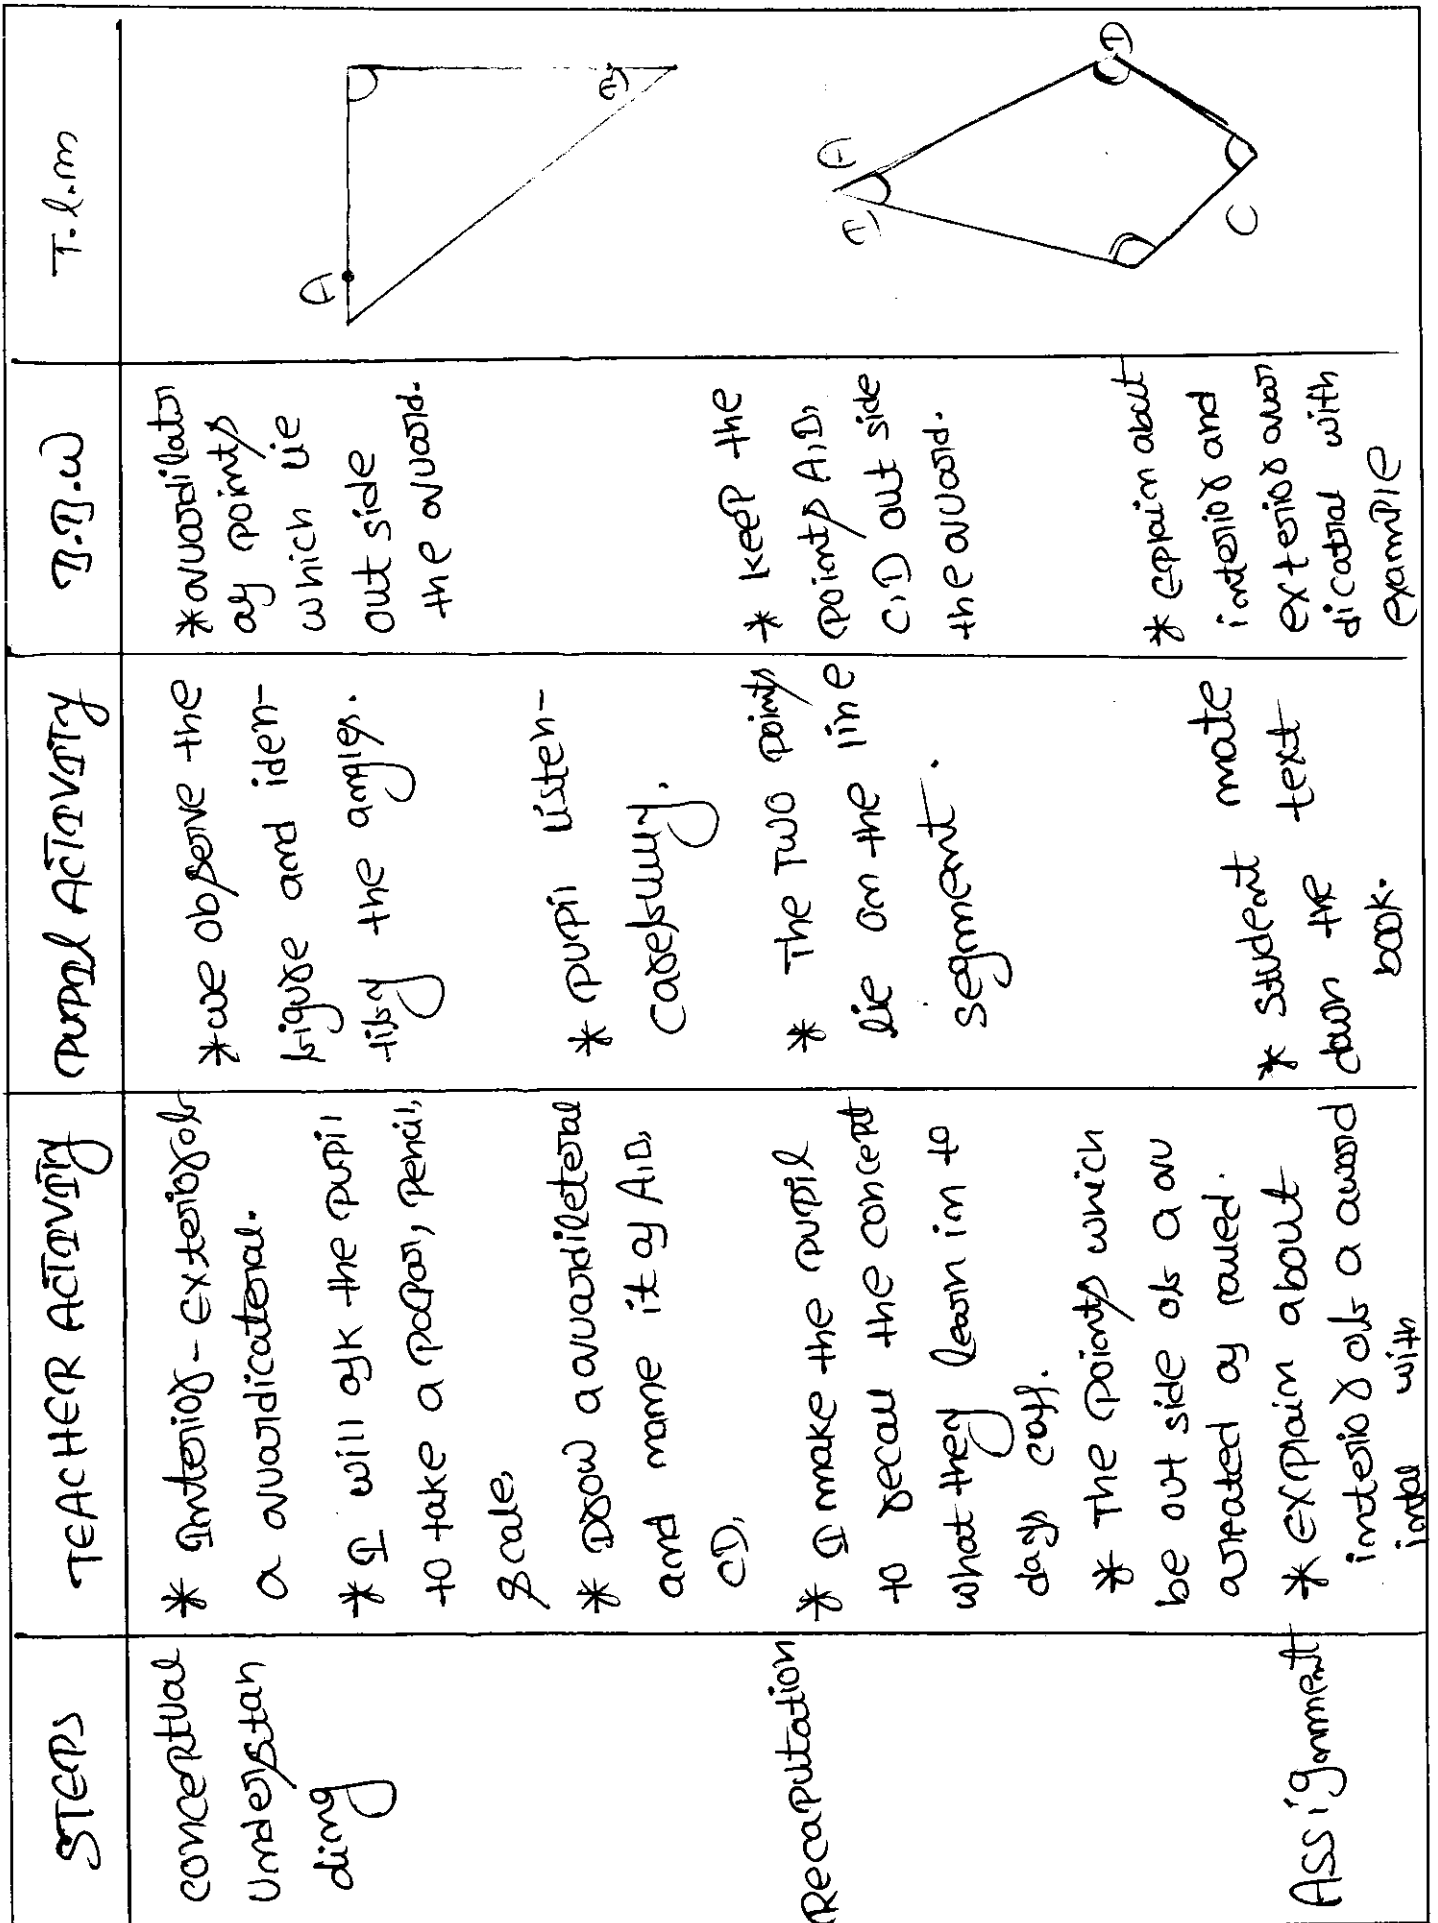 STEPS
TEACHER ACTIVITY
PUPIL ACTIVITY
B.B.W
T.L.M
Conceptual
Understan
ding
* Interior - Exterior of
a avuardicateral.
* I will ask the pupil
to take a paper, pencil,
Scale,
* Draw a avuardileteral
and name it as A,B,
C,D,
* we observe the
figure and iden-
tify the angles.
* pupil listen-
carefully.
* avuardilater
as points
which lie
out side
the avuard.
A
B
Recaputation
* I make the pupil
to recall the concept
what they learn in to
days cass.
* The points which
be out side of a avu
as
* The Two points
lie on the line
segment.
* keep the
points A,B,
C,D out side
the avuard.
A
B
C
D
Assignment
* Explain about
interior of a
with
* Student mate
down the text
book.
* Eplain about
interior and
exterior
dicatral with
example